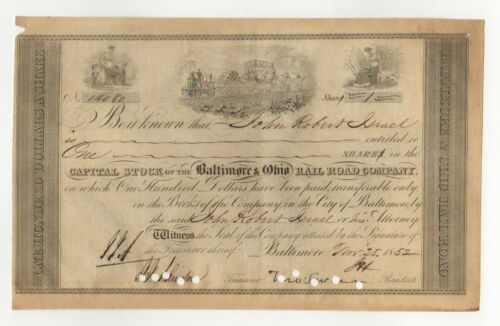 ONE HUNDRED DOLLARS A SHARE
BALTIMORE & OHIO RAIL ROAD
No. 14080 Share -1-
Be it known that John Robert Israel
is entitled to
One SHARES, in the
CAPITAL STOCK OF THE Baltimore & Ohio RAIL ROAD COMPANY,
on which One Hundred Dollars have been paid, transferable only
on the Books of the Company in the City of Baltimore, by
the said John Robert Israel or his Attorney
Witness the Seal of the Company, attested by the Signature of
the Treasurer thereof Baltimore Nov. 25, 1852
Treasurer Tho. Swann President